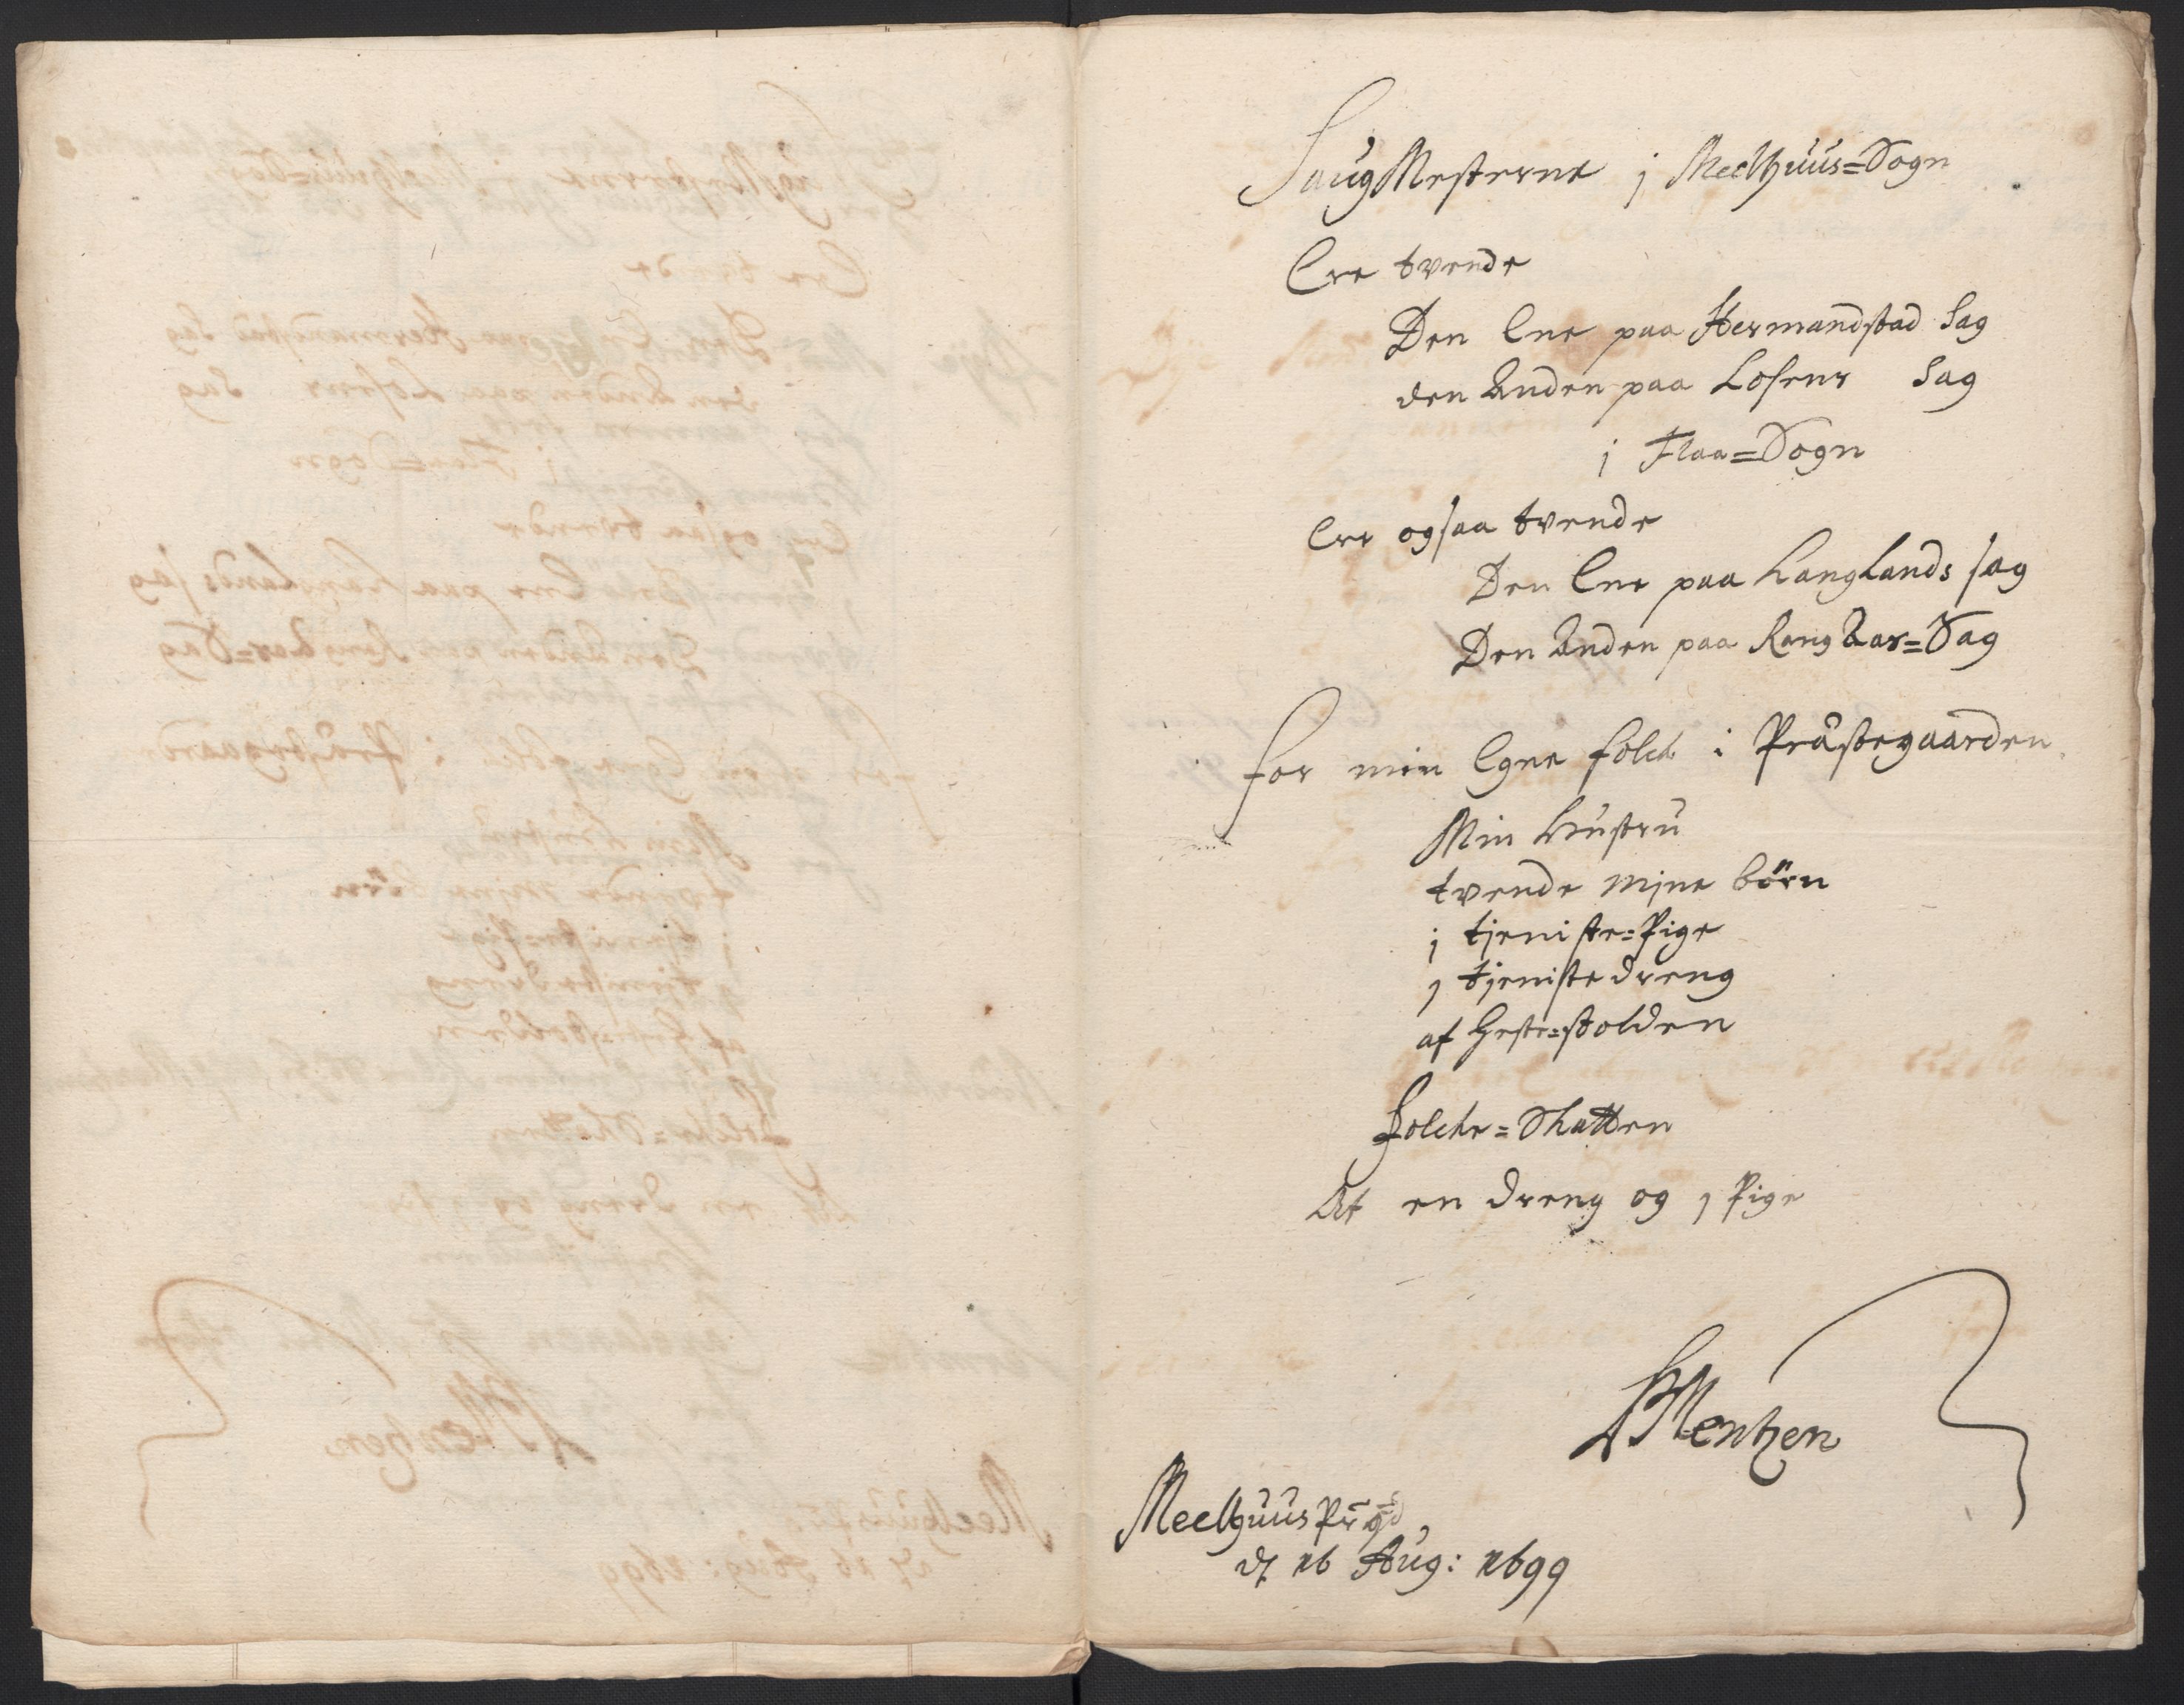 SaugMesterne j Meelhuus=Sogn
Ere tvende
Den Ene paa Hermandstad Sag
den Anden paa Losens Sag
j Flaa=Sogn
Ere ogsaa tvende
Den Ene paa Langlands sag
Den Anden paa Sag
for min Egne folck i Præstegaarden
Min Hustru
tvende mjne börn
j tjeniste=Pige
1 tjeniste dreng
af
folcke=Skatten
At en dreng og 1 Pige
HMentzen
Meelhuus
d 16 Aug: 1699